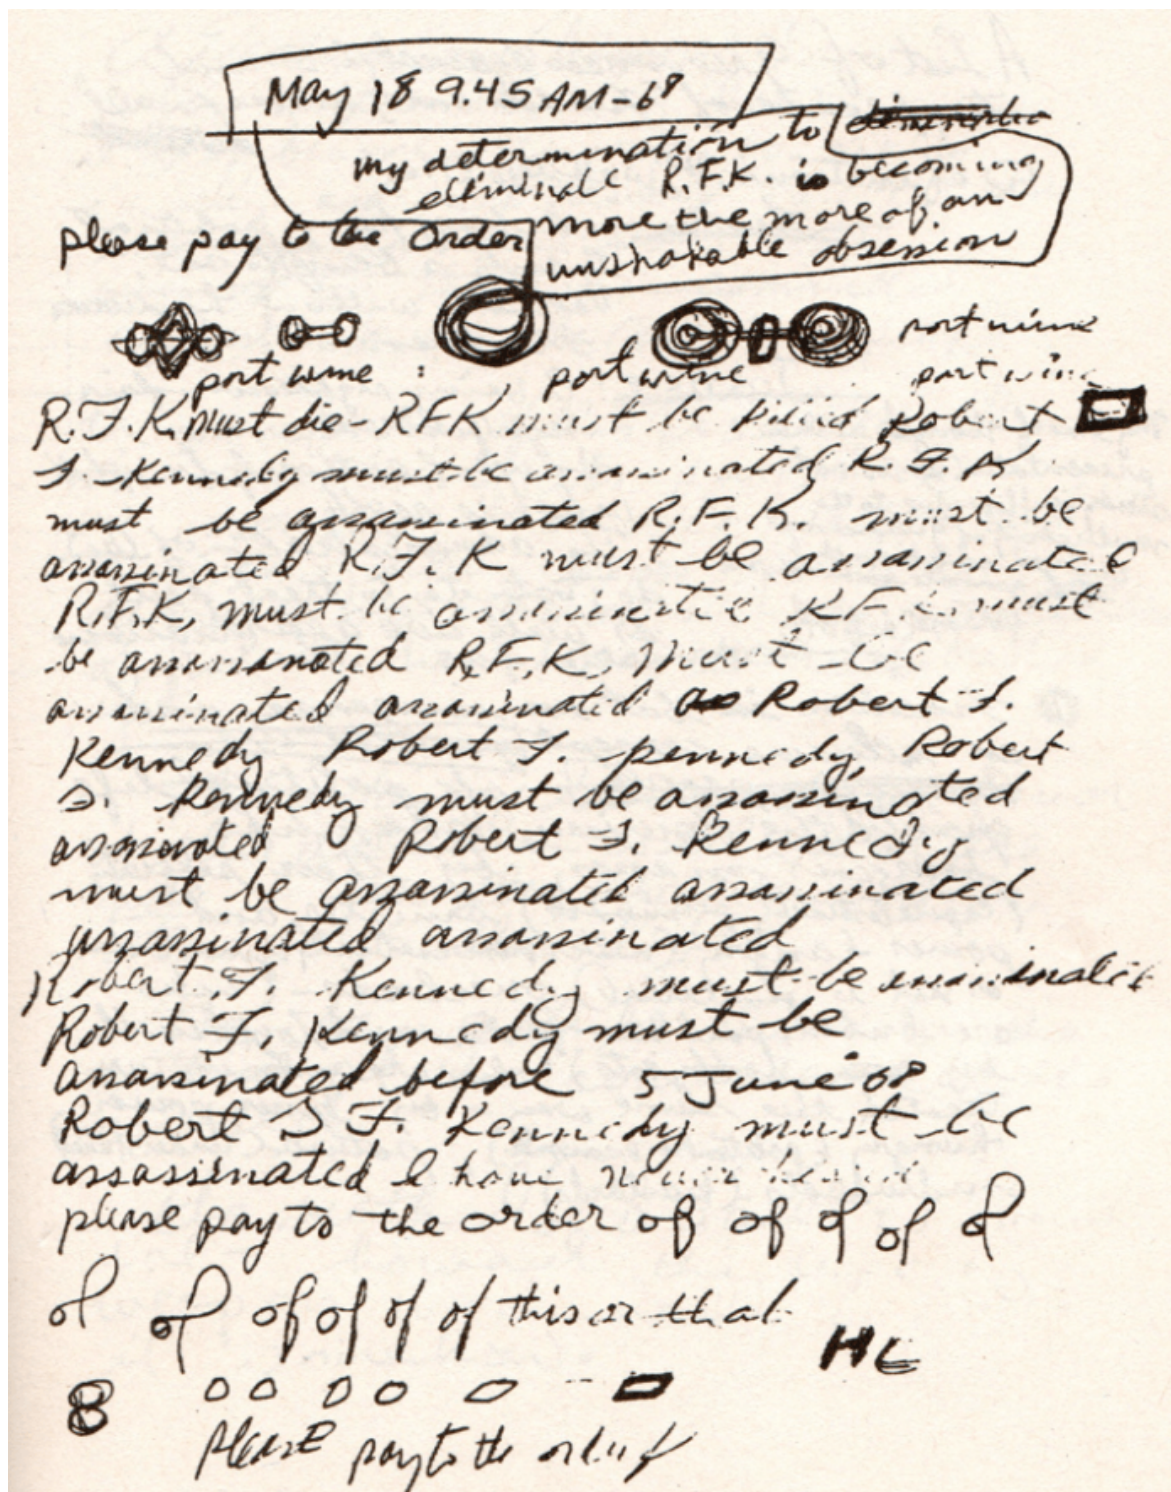 May 18 9.45 AM-68
my determination to
eliminate R.F.K. is becoming
please pay to the order
more the more of an
unshakable obsession
port wine
port wine : port wine port wine
R.F.K. must die - RFK must be killed Robert
F. Kennedy must be assassinated R. F. K
must be assassinated R. F. K. must be
assassinated R. F. K must be assassinated
R.F.K, must be assassinated R F K must
be assassinated R.F.K. must be
assassinated assassinated Robert F.
Kennedy Robert F. Kennedy, Robert
F. Kennedy must be assassinated
assassinated Robert F. Kennedy
must be assassinated assassinated
assassinated assassinated
Robert F. Kennedy must be assassinated
Robert F. Kennedy must be
assassinated before 5 June 68
Robert F. Kennedy must be
assassinated I have never heard
please pay to the order of of of of of
of of of of of of this or that
8
please pay to the order of